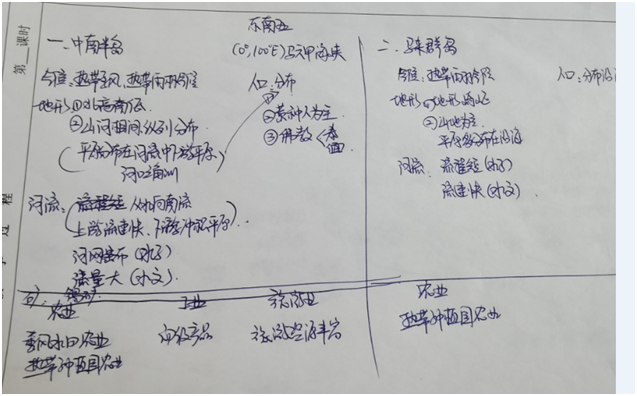 第__课时
东南亚
一、中南半岛
(0°,100°E)马六甲海峡
气候:热带季风、热带雨林气候
人口:分布
地形①北高南低
②山河相间纵列分布
②黄种人为主
(平原分布在河流中下游平原
河口三角洲)
③佛教<泰
缅
河流:流程长 从北向南流
上游流速快、下游冲积平原
河网密布(水系)
流量大(水文)
矿:锡
农业
工业
旅游业
季风水田农业
初级产品
旅游资源丰富
热带种植园农业
二、马来群岛
气候:热带雨林气候
人口:分布沿
地形①地形崎岖
②山地为主
平原分布在沿海
河流:流程短(水系)
流速快(水文)
农业
热带种植园农业
过程